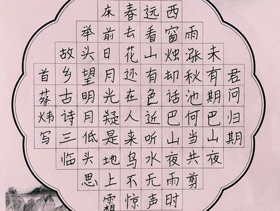 君问归期
未有期巴山夜
雨涨秋池何当共剪
西窗烛却话巴山夜雨时
远看山有色近听水无声
春去花还在人来鸟不惊
床前明月光疑是地上霜
举头望明月低头思
故乡古诗三
首蔡炜写